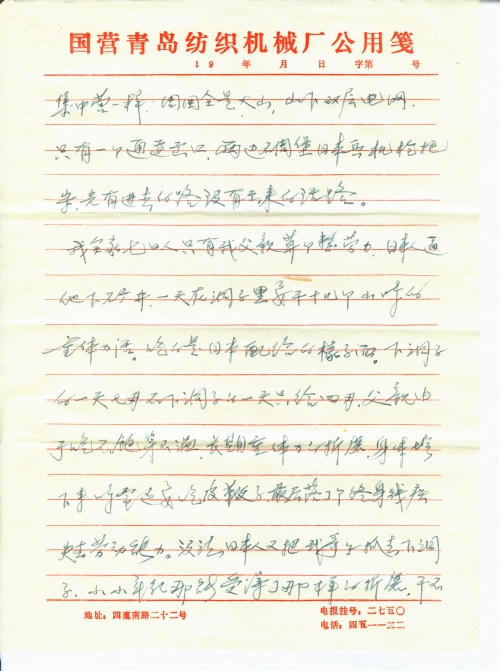 国营青岛纺织机械厂公用笺
19 年 月 日 字第 号
集中营一样，周围全是大山，山下双层电网，
只有一个通道出口，两边石周堡日本兵机枪把
守，光有进去的路没有出来的活路。
我全家七口人，只有我父亲算个整劳力，日本人逼
他下矿井，一天在洞子里要干十几个小时的
重体力活。吃的是日本配给的橡子面。下洞子
的一天七两不下洞子的一天只给四两，父亲由
于吃不饱穿不暖，长期重体力的折磨，身体垮
下来 还要吃皮鞭子最后落了个终身残疾
失去劳动能力。没法日本人又把我哥哥抓去下洞
子，小小年纪那能受得了那样的折磨，干不
地址：四流南路二十二号
电报挂号：二七五〇
电话：四五一一二二